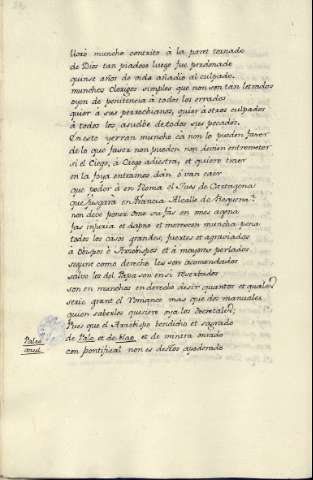 lloró muncho contrito à la paret tornado
de Dios tan piadoso luego fue perdonado
quinse años de vida añadio al culpado.
munchos Clerigos simples que non son tan letrados
oyen de penitencia à todos los errados
quier à sus perrochianos, quier à otros culpados
à todos los asuelve de todos sus pecados.
En esto yerran muncho cà non lo pueden faser
de lo que faser non pueden non devien entremeter
si el Ciego, à Ciego adiestra, et quiere traer
en la foya entramos dan, ò van caer
que poder à en Roma el Jues de Cartagena
que jusgara en Francia Alcalle de Requena?
non deve poner ome su fas en mies agena
fas injuria et dapno et meresce muncha pena
todos los casos grandes, fuertes et agraviados
à Obispos è Arzobispos et à mayores perlados
segunt como derecho les son acomendados
salvo los del Papa son en si reservados
son en munchos en derecho desir quantos et quales
serie grant el Romance mas que dos manuales
quien saberlos quisiere oya las Decretales
Pues que el Arzobispo bendicho et sagrado
de Palo et de blao et de mintra onrado
con pontifical non es destos apoderado